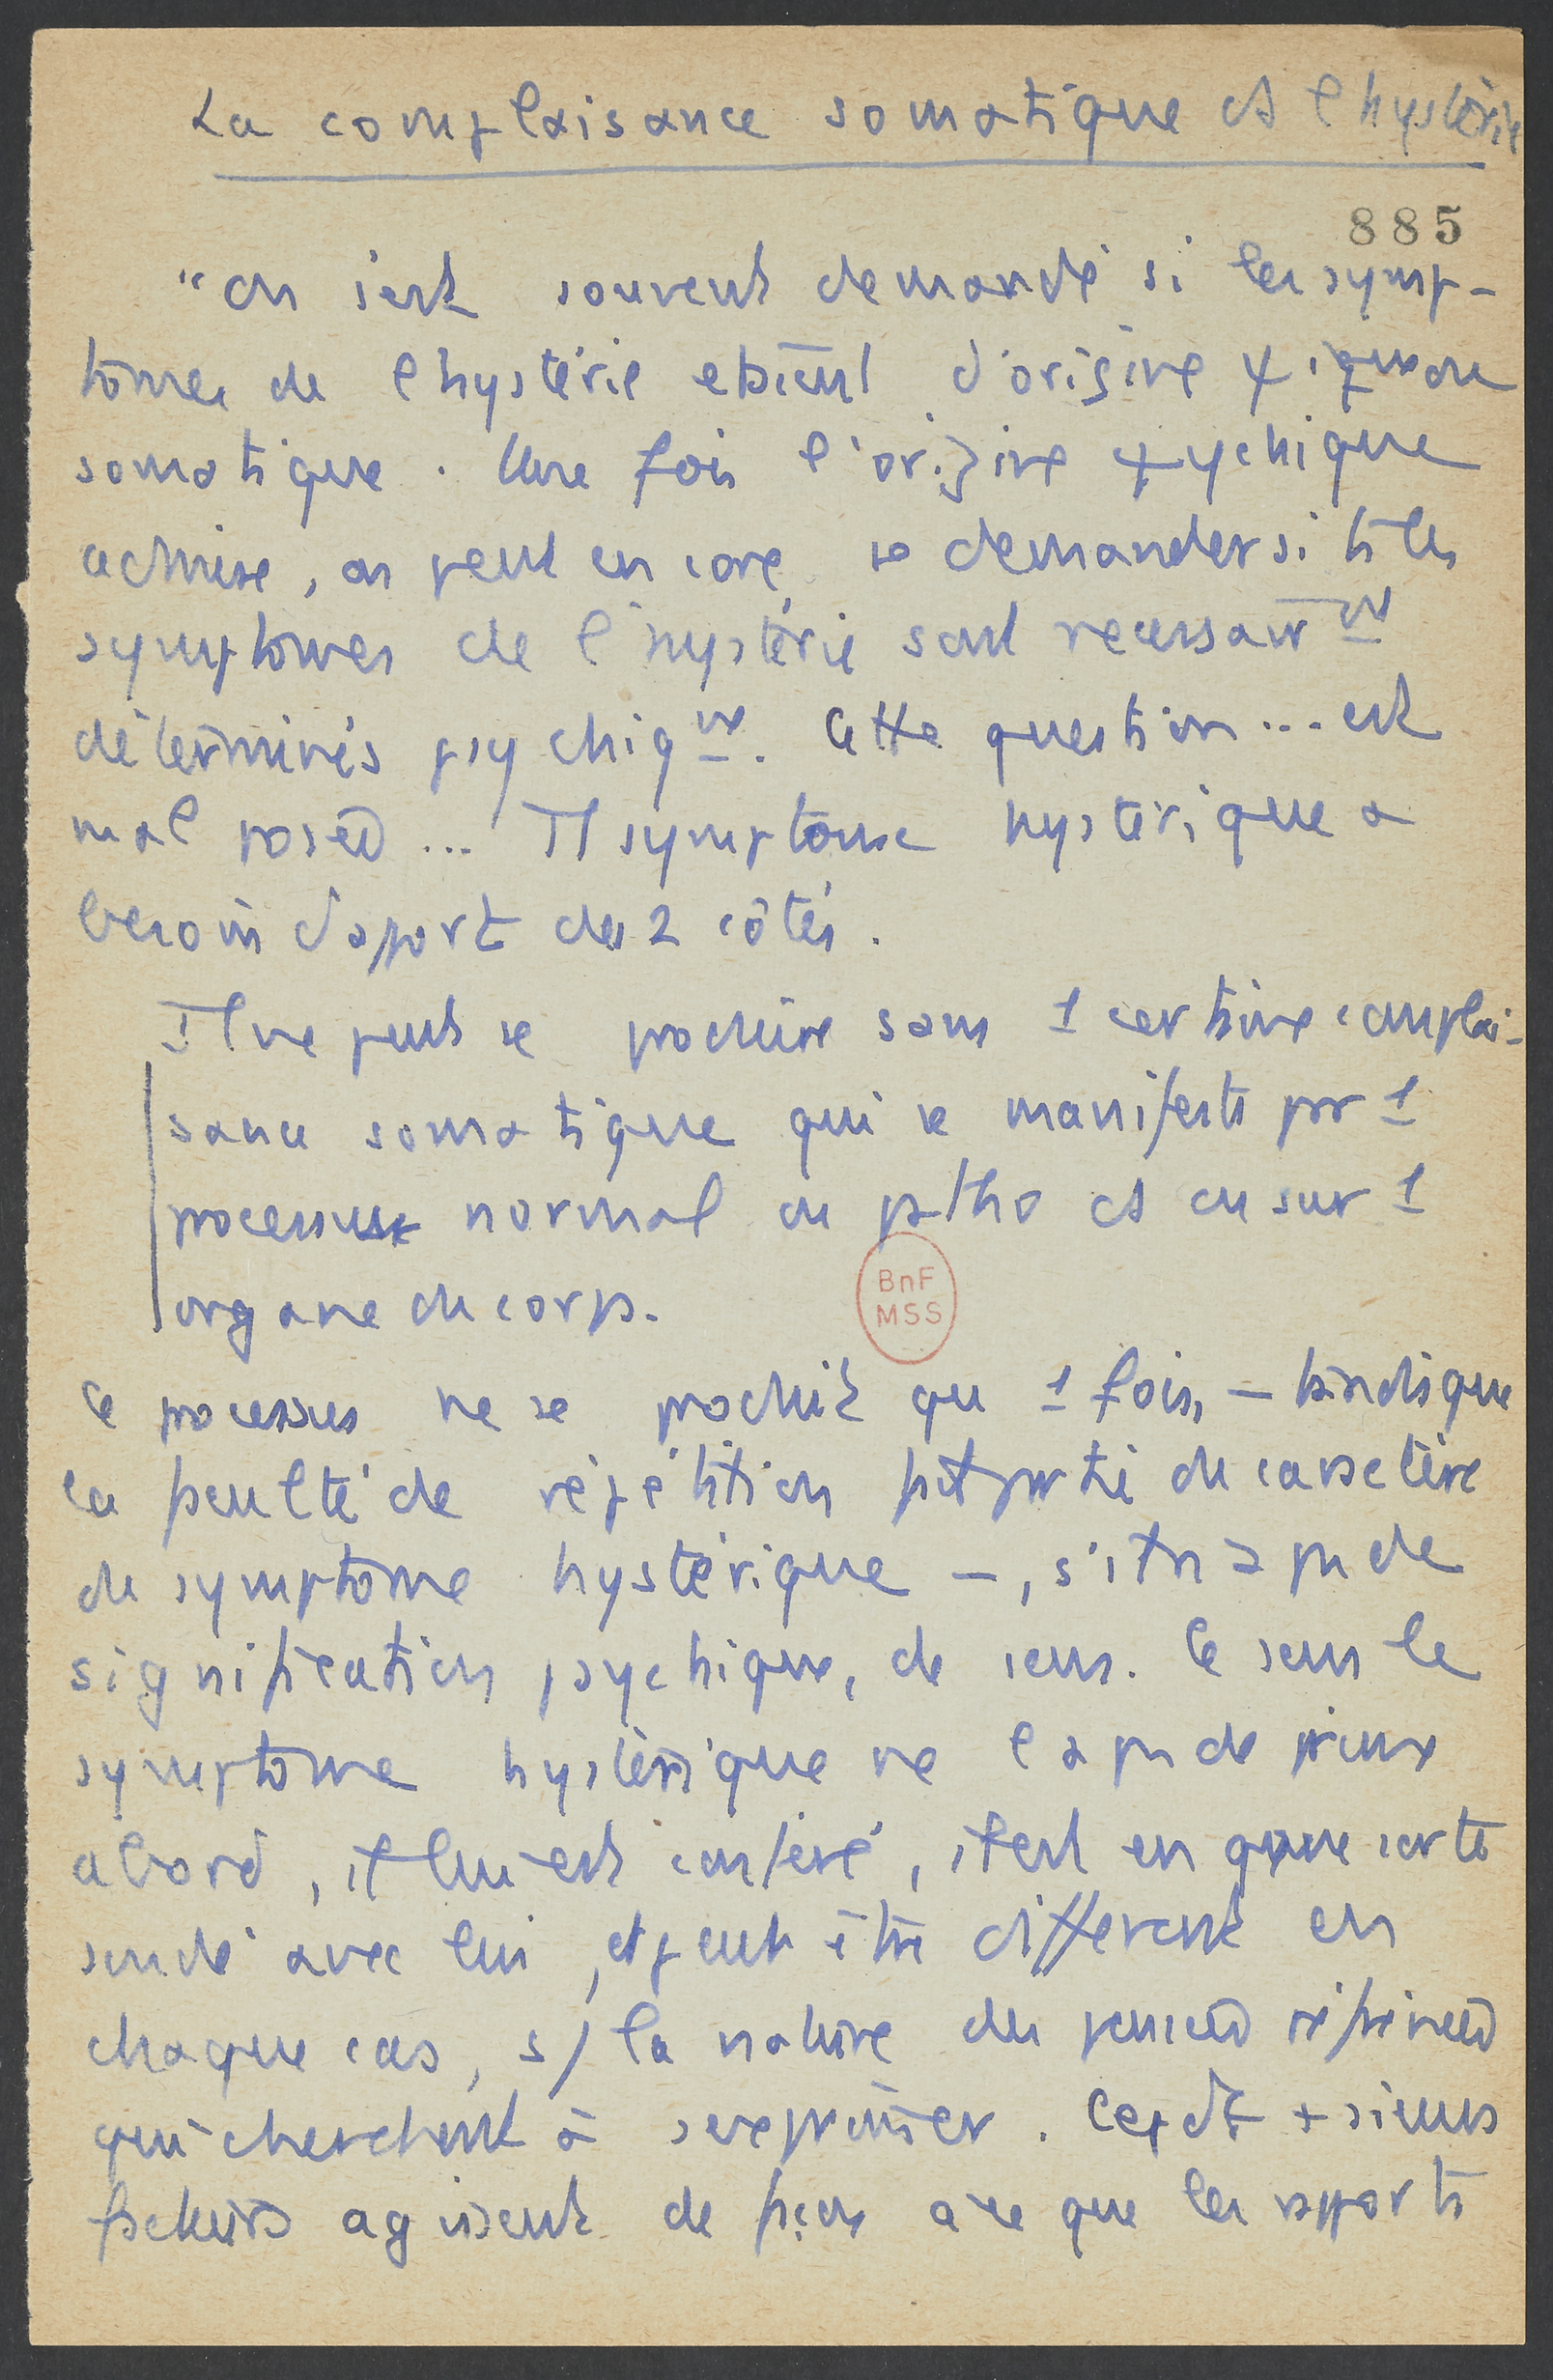 La complaisance somatique et l'hystérie
885
"On s'est souvent demandé si les symp-
tômes de l'hystérie etaient d'origine ψique ou
somatique. Une fois l'origine ψychique
admise, on peut encore se demander si ts les
symptomes de l'hystérie sont necessairmt
déterminés psychiqmt. Cette question... est
mal posée... Tt symptome hystérique a
besoin d'apport des 2 côtés.
Il ne peut se produire sans 1 certaine complai-
sance somatique qui se manifeste par 1
processus normal ou patho et ou sur 1
organe du corps.
Ce processus ne se produit qu 1 fois, – tandis que
la faculté de répétition fait partie du caractère
du symptome hystérique –, s'il n'a pas de
signification psychique, de sens. Ce sens le
symptome hystérique ne l'a pas de prime
abord, il lui est conféré, il est en qque sorte
soudé avec lui, et peut être différent en
chaque cas, s/ la nature des pensées réprimées
qui cherchent à s'exprimer. Cepdt + sieurs
facteurs agissent de façon a ce que les rapports
BnF
MSS